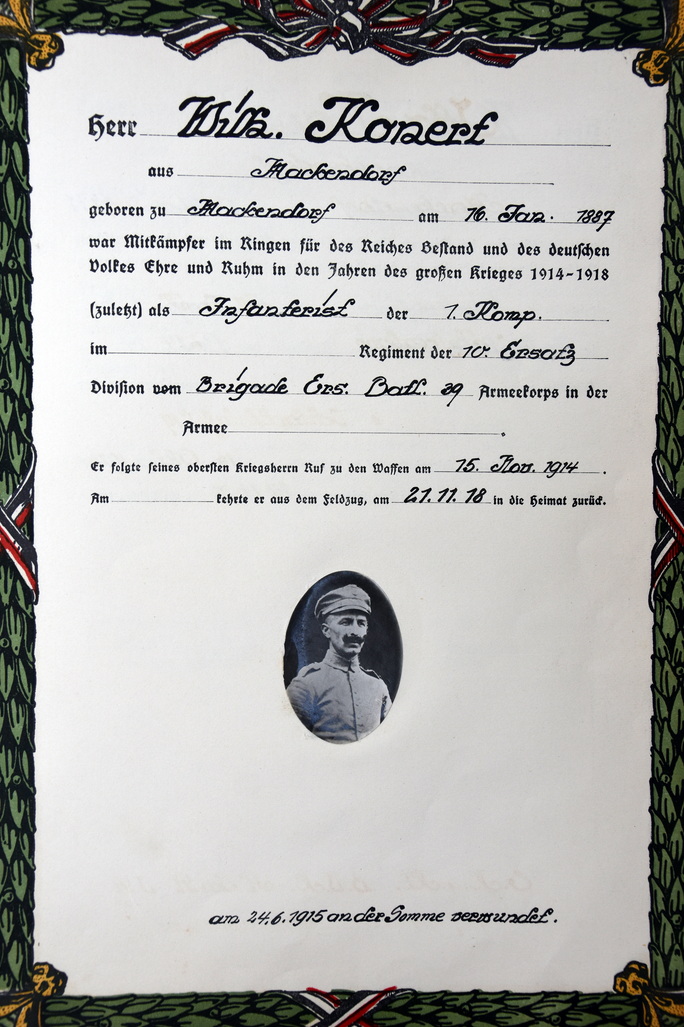 Herr Wilh. Konert
aus Mackendorf
geboren zu Mackendorf am 16. Jan. 1887
war Mitkämpfer im Ringen für des Reiches Bestand und des deutschen
Volkes Ehre und Ruhm in den Jahren des großen Krieges 1914-1918
(zuletzt) als Infanterist der 1. Komp.
im Regiment der 10. Ersatz
Division vom Brigade Ers. Batl. 39 Armeekorps in der
Armee .
Er folgte seines obersten Kriegsherrn Ruf zu den Waffen am 15. Nov. 1914 .
Am kehrte er aus dem Feldzug, am 21.11.18 in die Heimat zurück.
am 24.6.1915 an der Somme verwundet.